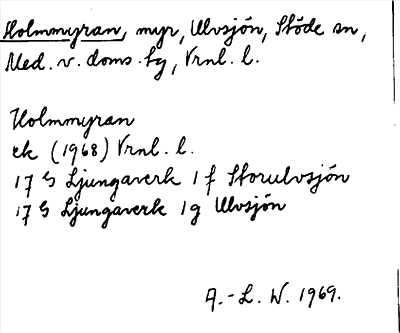 Holmmyran, myr, Ulvsjön, Stöde sn,
Med. v. doms. tg, Vrnl. l.
Holmmyran
ek (1968) Vrnl. l.
17 G Ljungaverk 1 f Storulvsjön
17 G Ljungaverk 1 g Ulvsjön
A.-L. W. 1969.